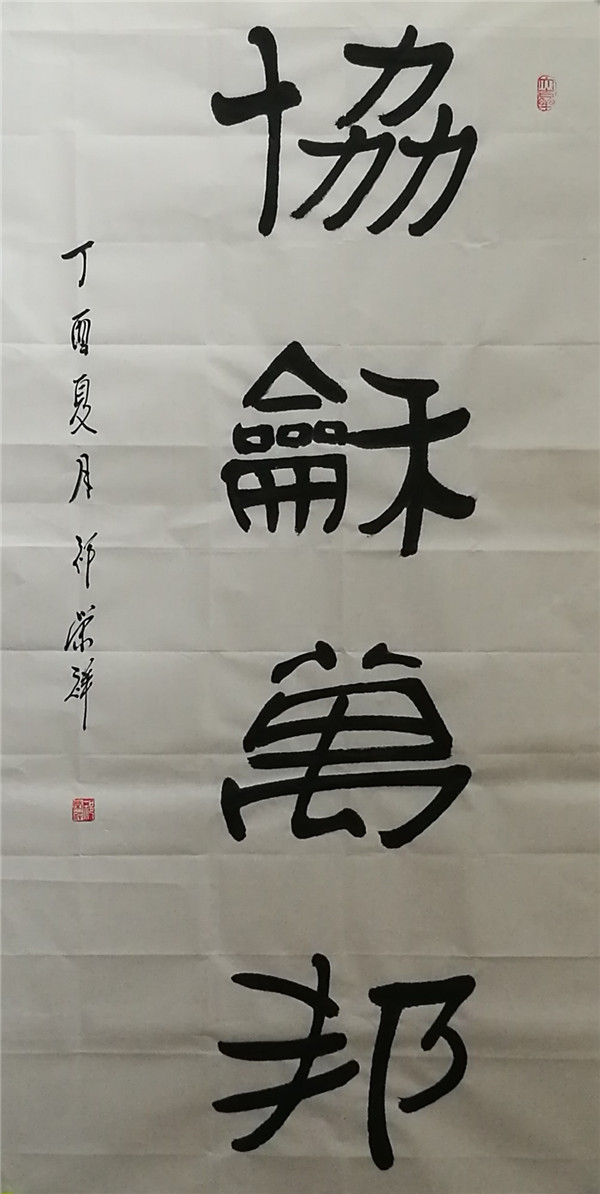 協龢萬邦
丁酉夏月祁榮祥